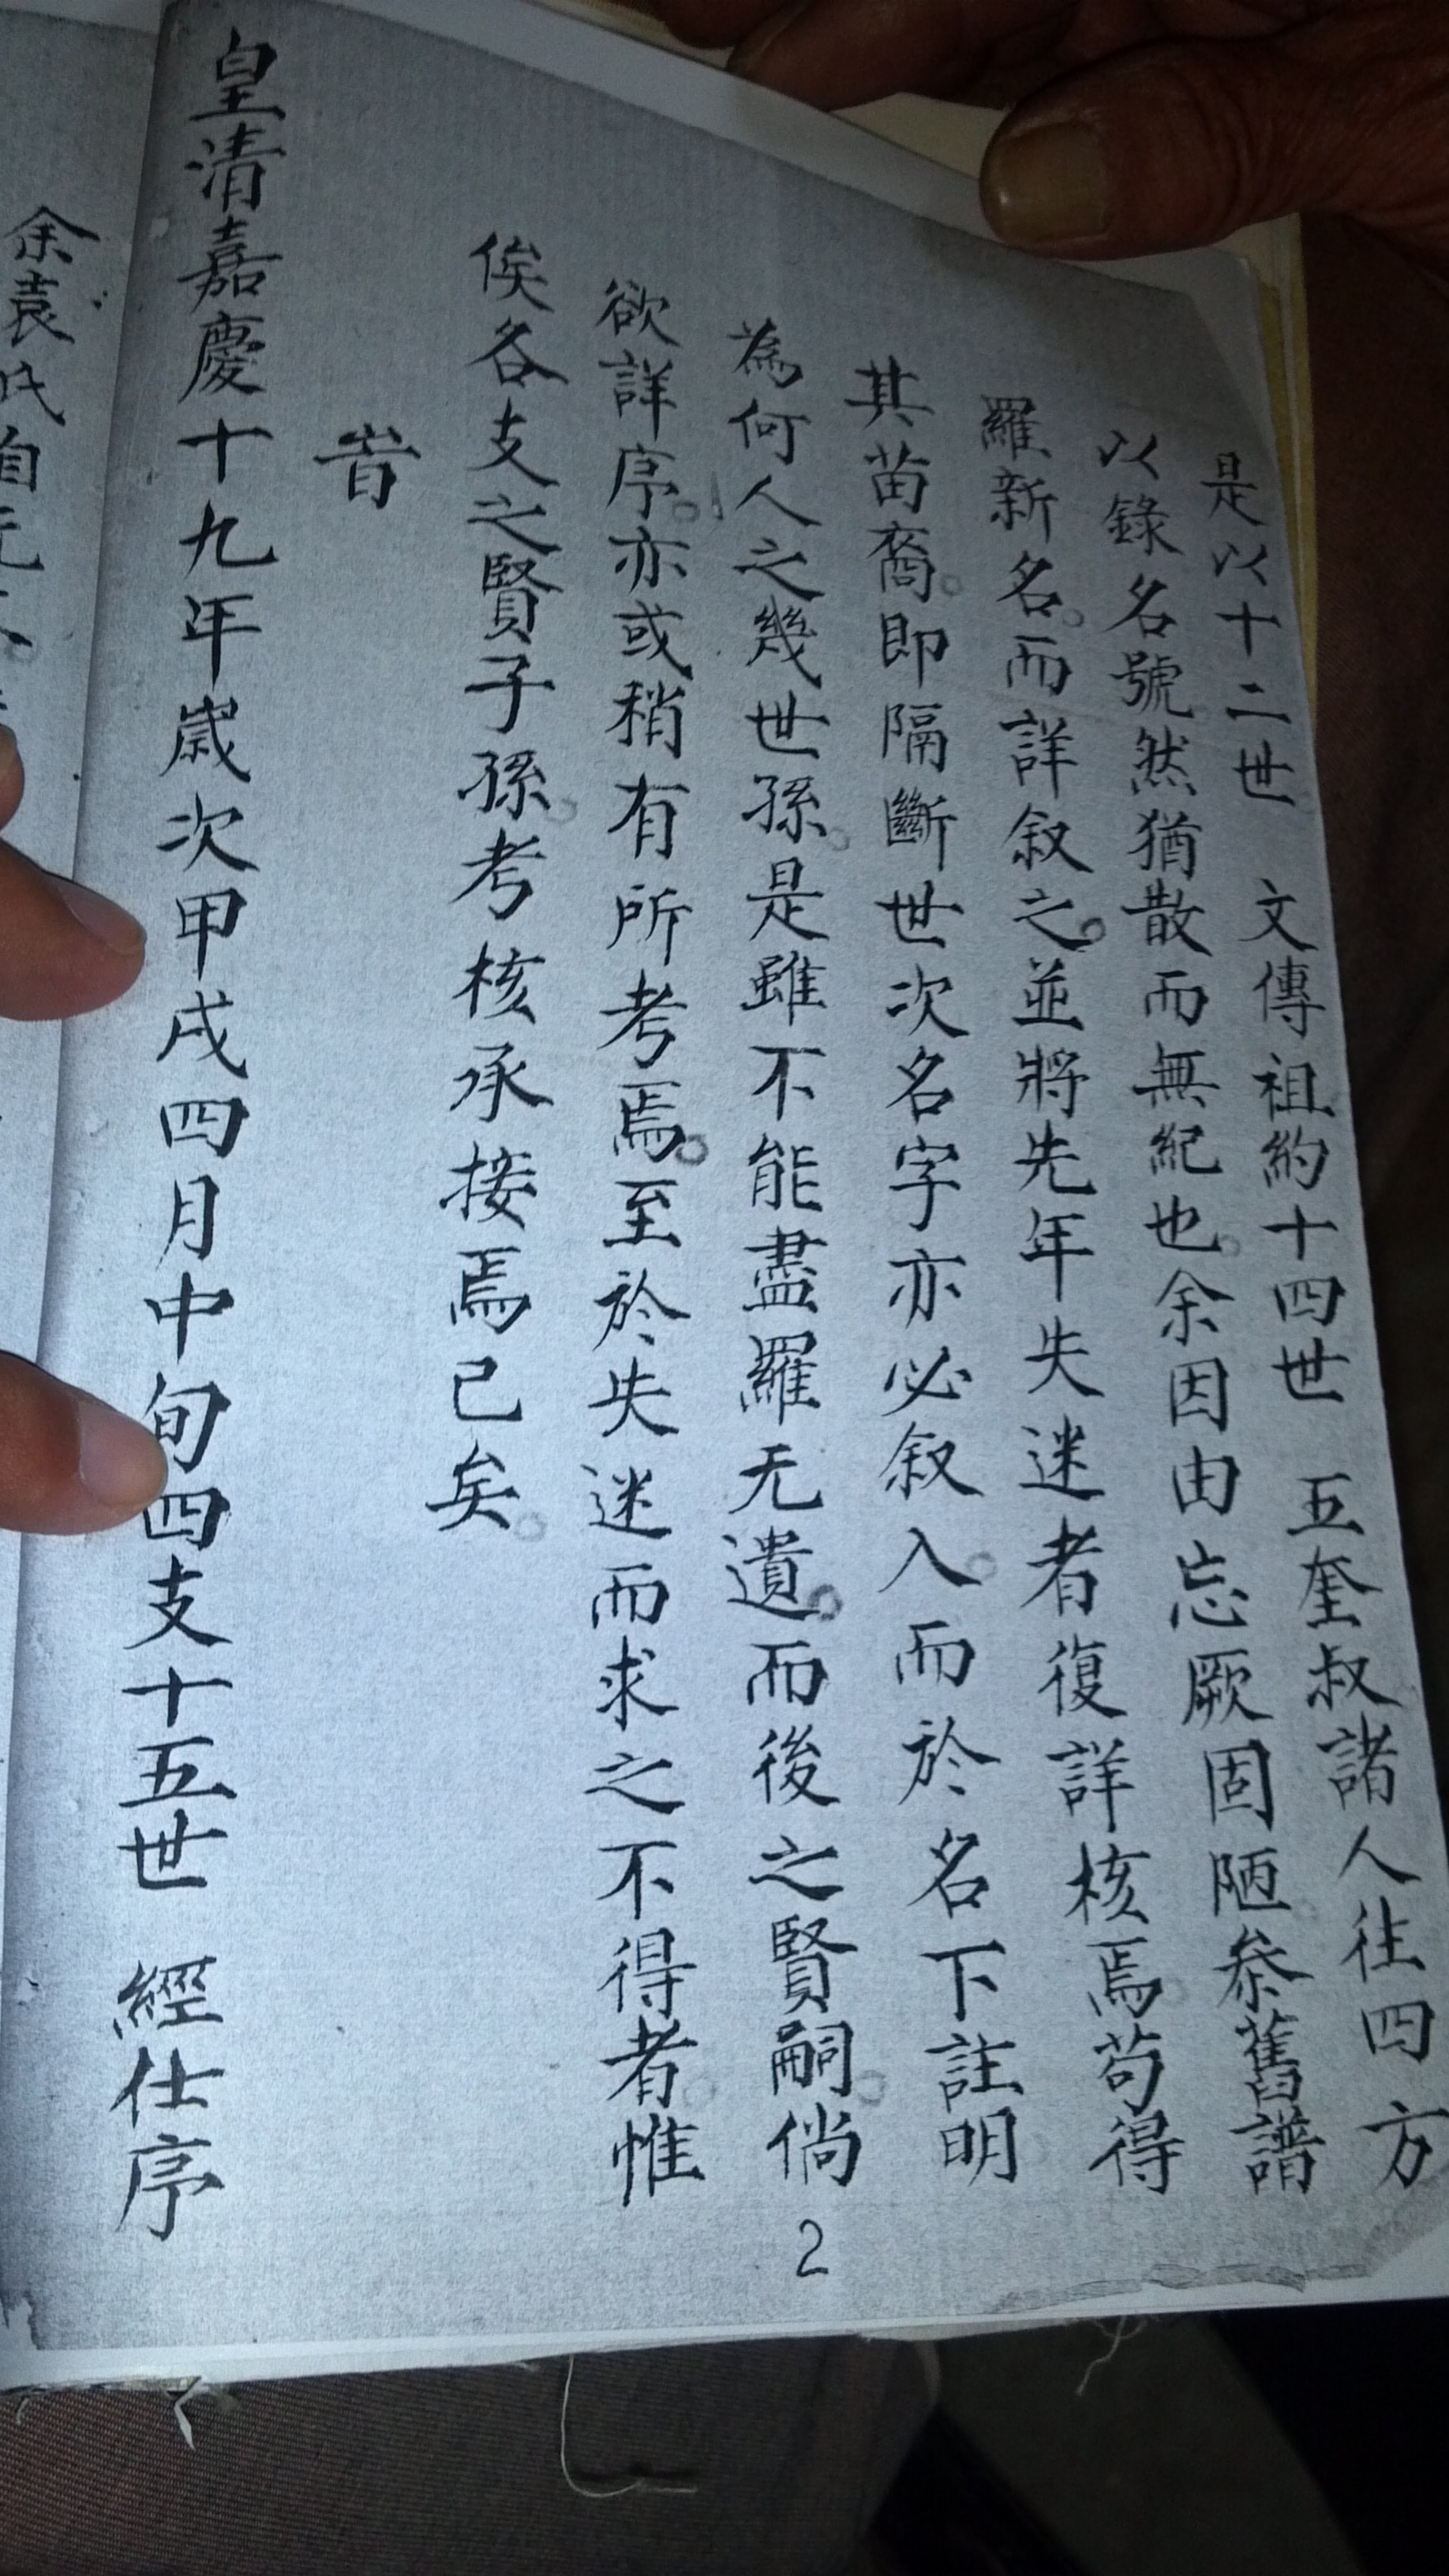 是以十二世 文傳祖約十四世 五奎叔諸人往四方
以錄名號然猶散而無紀也。余因由忘厥固陋叅舊譜
羅新名。而詳叙之。並將先年失迷者復詳核焉。苟得
其苗裔。即隔斷世次名字亦必叙入。而於名下註明
為何人之幾世孫。是雖不能盡羅无遺。而後之賢嗣。倘
欲詳序。亦或稍有所考焉。至於失迷而求之不得者。惟
俟各支之賢子孫。考核承接焉已矣。
旹
皇清嘉慶十九年歲次甲戌四月中旬四支十五世 經仕序
余袁氏自元
2